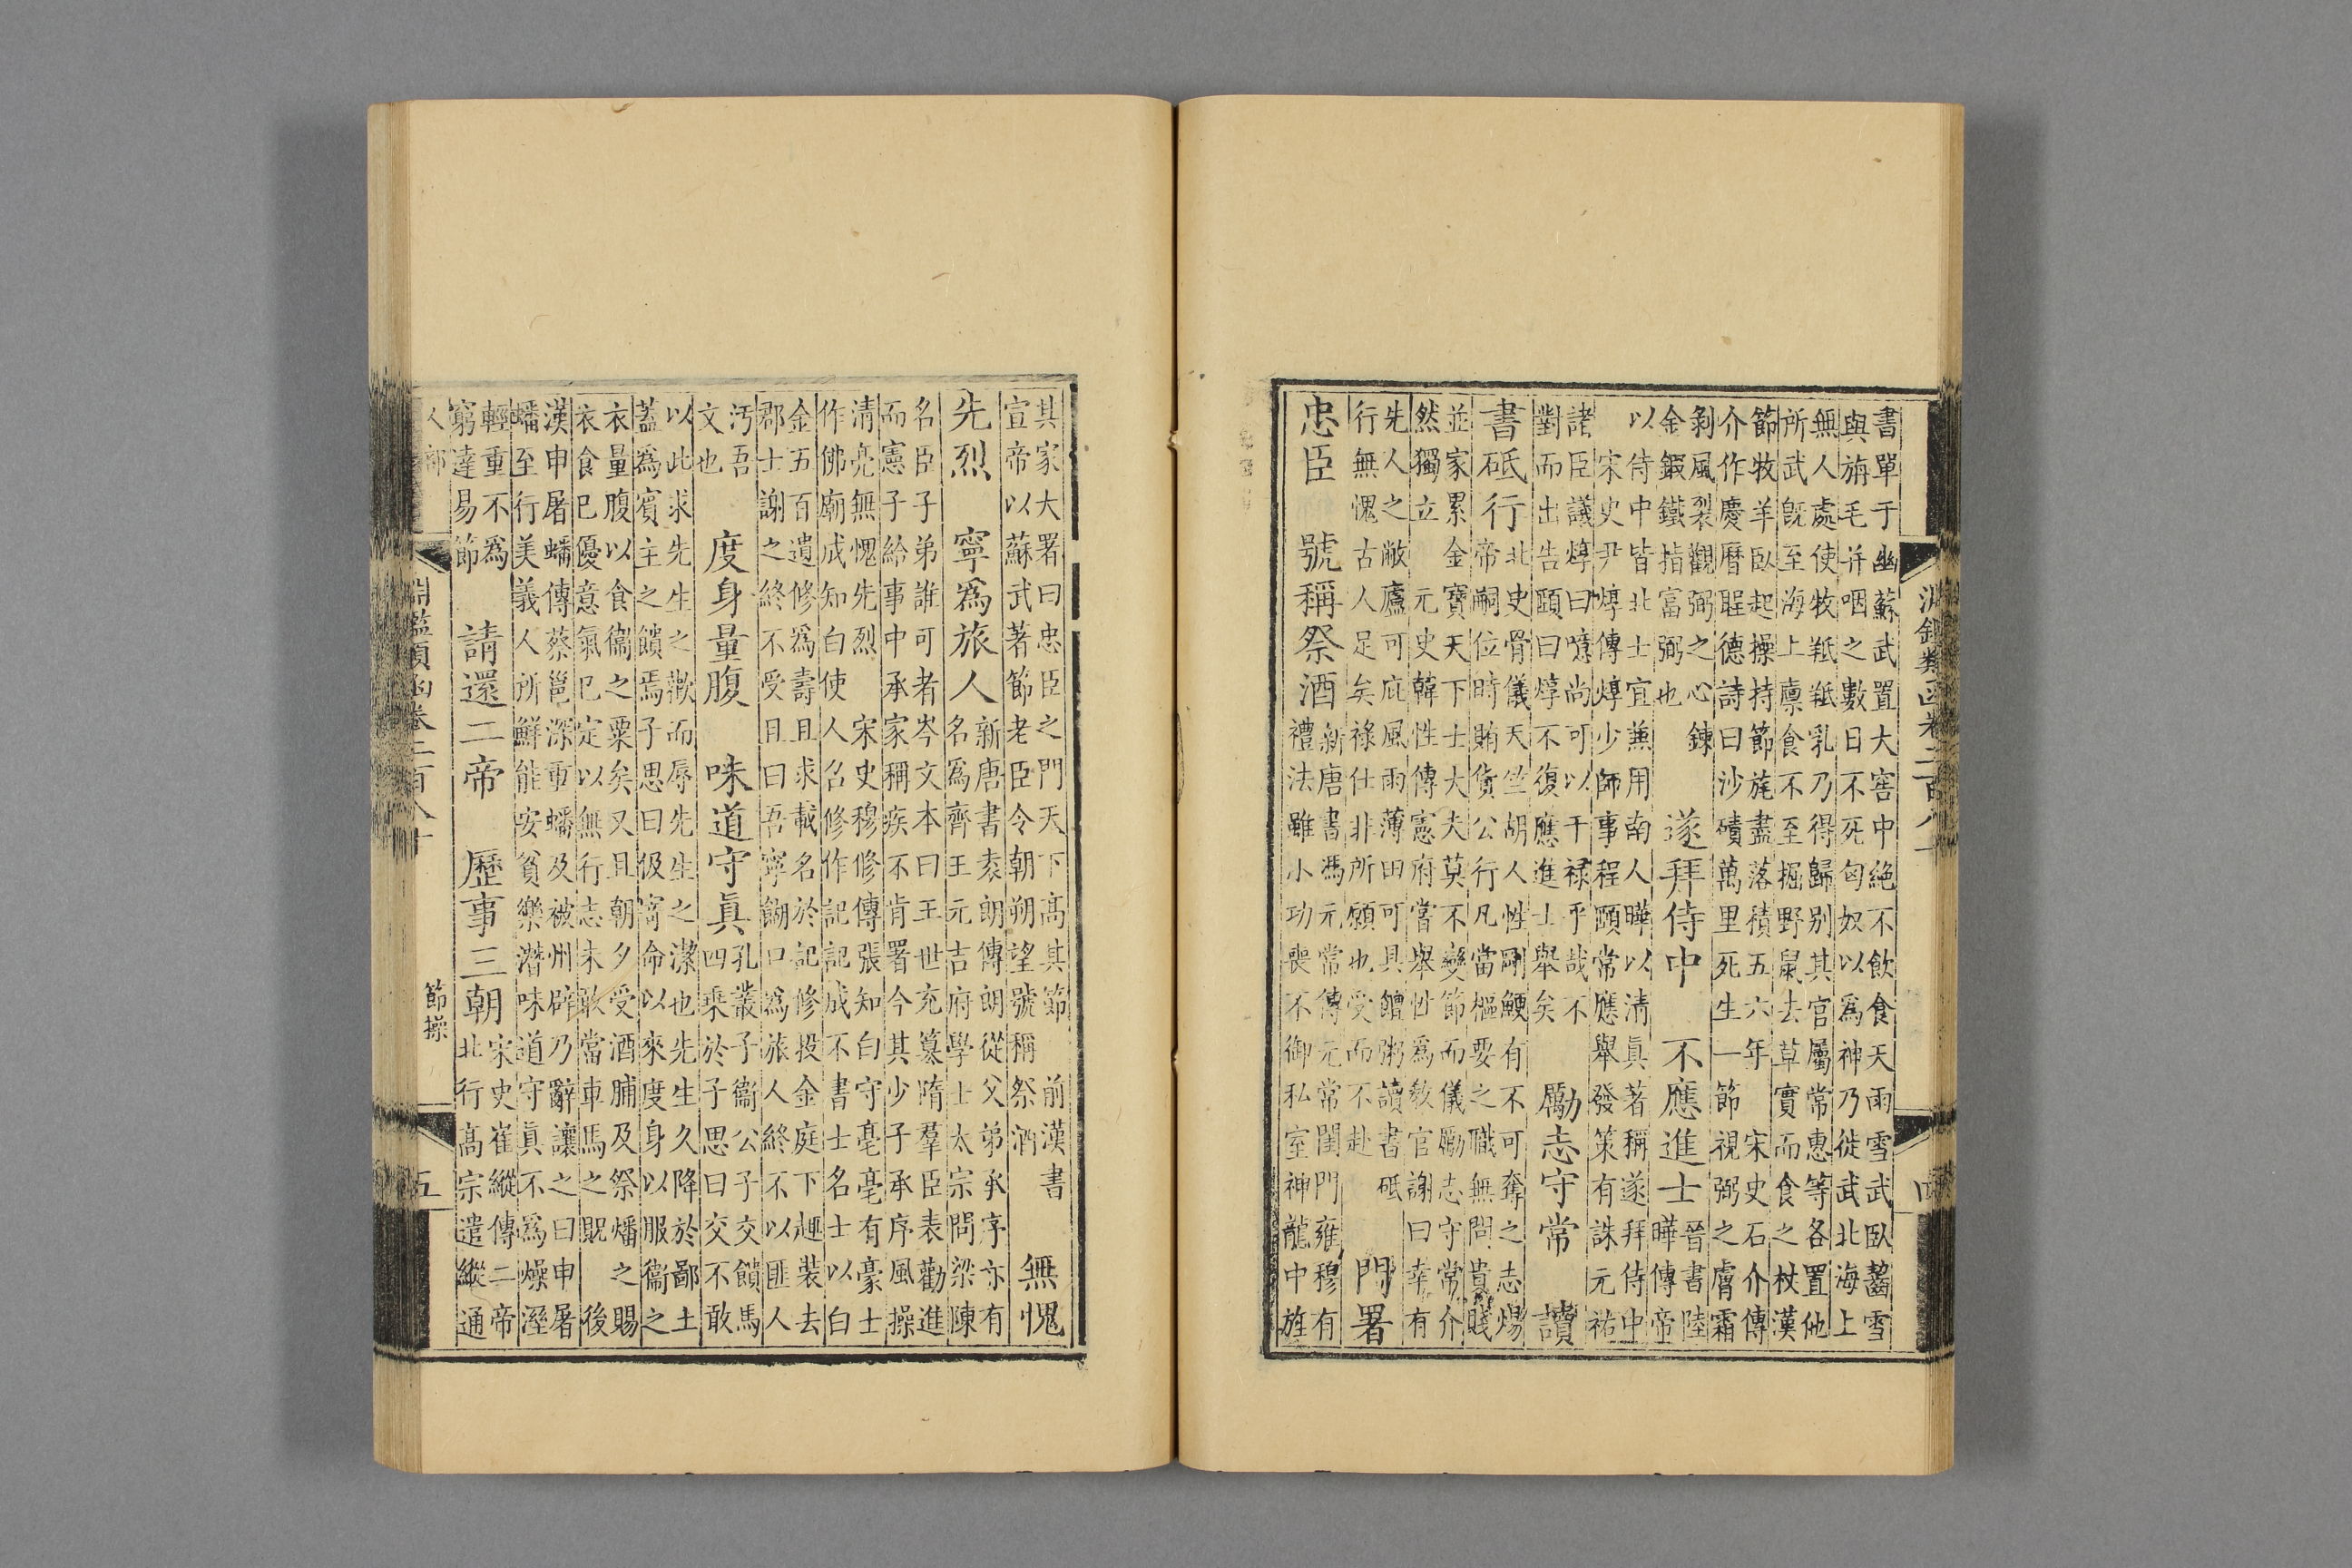 淵鑑類函卷二百八十 四
書單于幽蘇武置大窖中絕不飲食天雨雪武臥齧雪
與旃毛并咽之數日不死匈奴以爲神乃徙武北海上
無人處使牧羝羝乳乃得歸別其官屬常惠等各置他
所武旣至海上廪食不至掘野鼠去草實而食之杖漢
節牧羊臥起操持節旄盡落積五六年 宋史石介傳
介作慶曆聖德詩曰沙磧萬里死生一節視弼之膚霜
剝風裂觀弼之心鍊
金鍜鐵指富弼也
遂拜侍中 不應進士
晉書陸
曄傳帝
以侍中皆北士宜兼用南人曄以清眞著稱遂拜侍中
宋史尹焞傳焞少師事程頤常應舉發策有誅元祐
諸臣議焞曰噫尚可以干祿乎哉不
對而出告頤曰焞不復應進士舉矣
勵志守常 讀
書砥行
北史骨儀天竺胡人性剛鯁有不可奪之志煬
帝嗣位時賄貨公行凡當樞要之職無問貴賤
並家累金寶天下士大夫莫不變節而儀勵志守常介
然獨立 元史韓性傳憲府嘗舉性爲教官謝曰幸有
先人之敝廬可庇風雨薄田可具饘粥讀書砥
行無愧古人足矣祿仕非所願也受而不赴
門署
忠臣 號稱祭酒
新唐書馮元常傳元常閨門雍穆有
禮法雖小功喪不御私室神龍中旌
其家大署曰忠臣之門天下高其節 前漢書
宣帝以蘇武著節老臣令朝朔望號稱祭酒
無愧
先烈 寧爲旅人
新唐書袁朗傳朗從父弟承序亦有
名爲齊王元吉府學士太宗問梁陳
名臣子弟誰可者岑文本曰王世充篡隋羣臣表勸進
而憲子給事中承家稱疾不肯署今其少子承序風操
清亮無愧先烈 宋史穆修傳張知白守亳亳有豪士
作佛廟成知白使人召修作記記成不書士名士以白
金五百遺修爲壽且求載名於記修投金庭下趣裝去
郡士謝之終不受且曰吾寧餬口爲旅人終不以匪人
汚吾
文也
度身量腹 味道守眞
孔叢子衞公子交饋馬
四乘於子思曰交不敢
以此求先生之歡而辱先生之潔也先生久降於鄙土
蓋爲賓主之餽焉子思曰伋寄命以來度身以服衞之
衣量腹以食衞之粟矣又且朝夕受酒脯及祭燔之賜
衣食已優意氣已定以無行志未敢當車馬之貺 後
漢申屠蟠傳蔡邕深重蟠及被州辟乃辭讓之曰申屠
蟠至行美義人所鮮能安貧樂潛味道守眞不爲燥溼
輕重不爲
窮達易節
請還二帝 歷事三朝
宋史崔縱傳二帝
北行高宗遣縱通
人部 淵鑑類函卷二百八十 節操 五